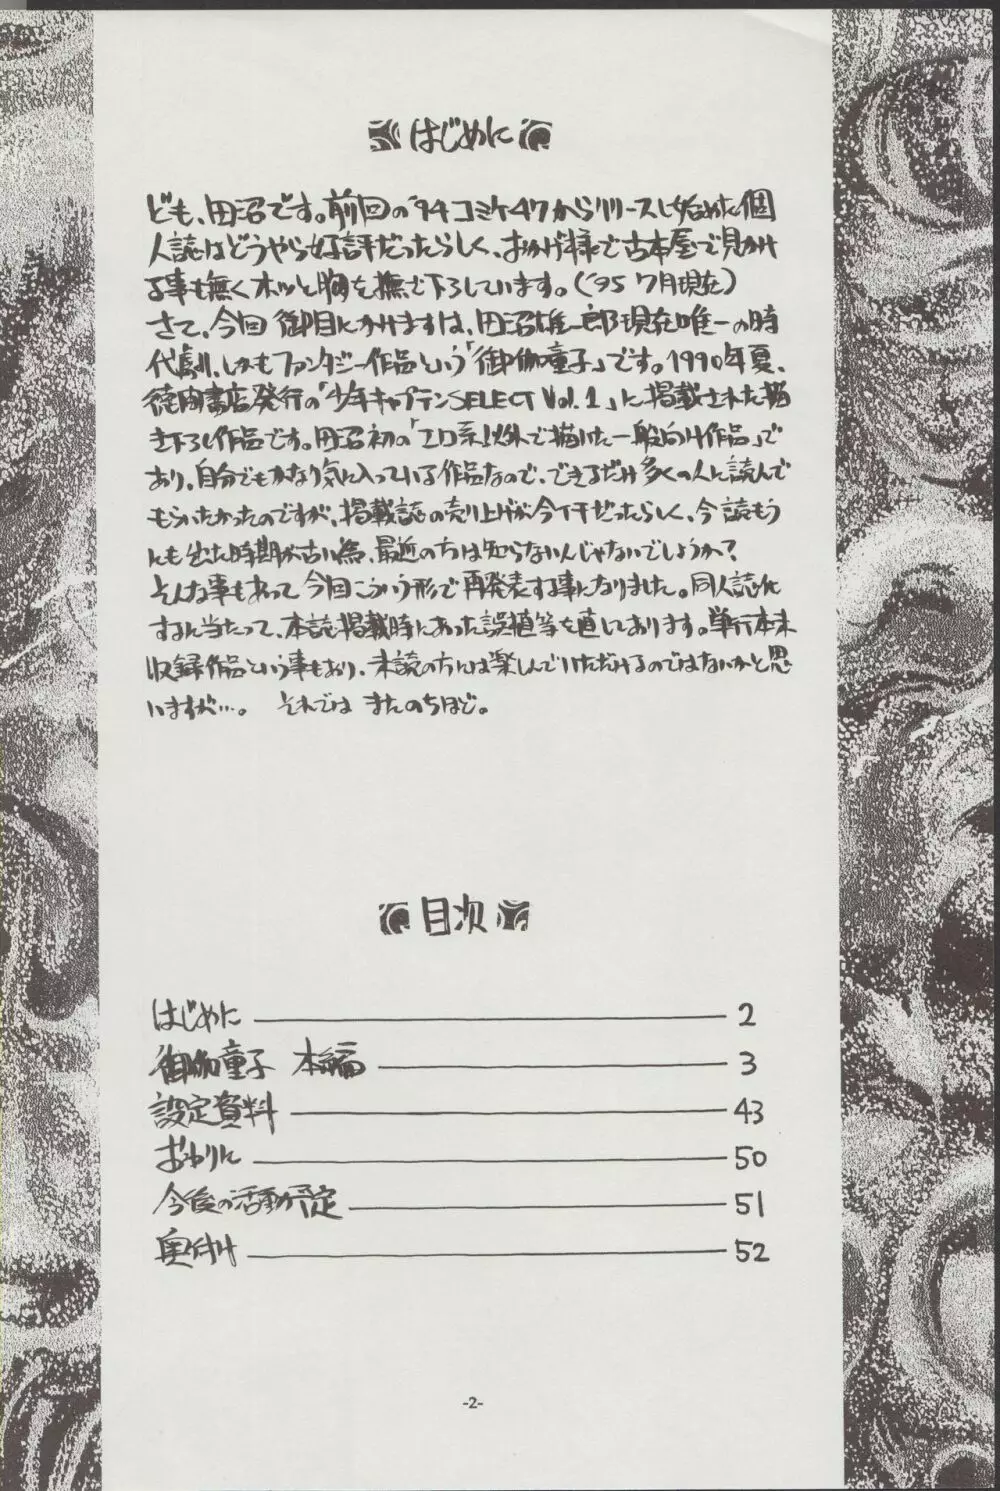 はじめに
ども、田沼です。前回の'94コミケ47からリリースし始めた個
人誌はどうやら好評だったらしく、おかげ様で古本屋で見かけ
る事も無くホッと胸を撫で下ろしています。('95 7月現在)
さて、今回御目にかけますは、田沼雄一郎現在唯一の時
代劇、しかもファンタジー作品という「御伽童子」です。1990年夏、
徳間書店発行の「少年キャプテンSELECT Vol.1」に掲載された描
き下ろし作品です。田沼初の「エロ系」以外で描いた一般向け作品」で
あり、自分でもかなり気に入っている作品なので、できるだけ多くの人に読んで
もらいたかったのですが、掲載誌の売り上げが今イチだったらしく、今読もう
にも出た時期が古い為、最近の方は知らないんじゃないでしょうか?
そんな事もあって今回こういう形で再発表する事になりました。同人誌化
するに当たって、本誌掲載時にあった誤植等を直してあります。単行本未
収録作品という事もあり、未読の方には楽しんでいただけるのではないかと思
いますが…。 それでは またのちほど。
目次
はじめに 2
御伽童子 本編 3
設定資料 43
おわりに 50
今後の活動予定 51
奥付け 52
-2-